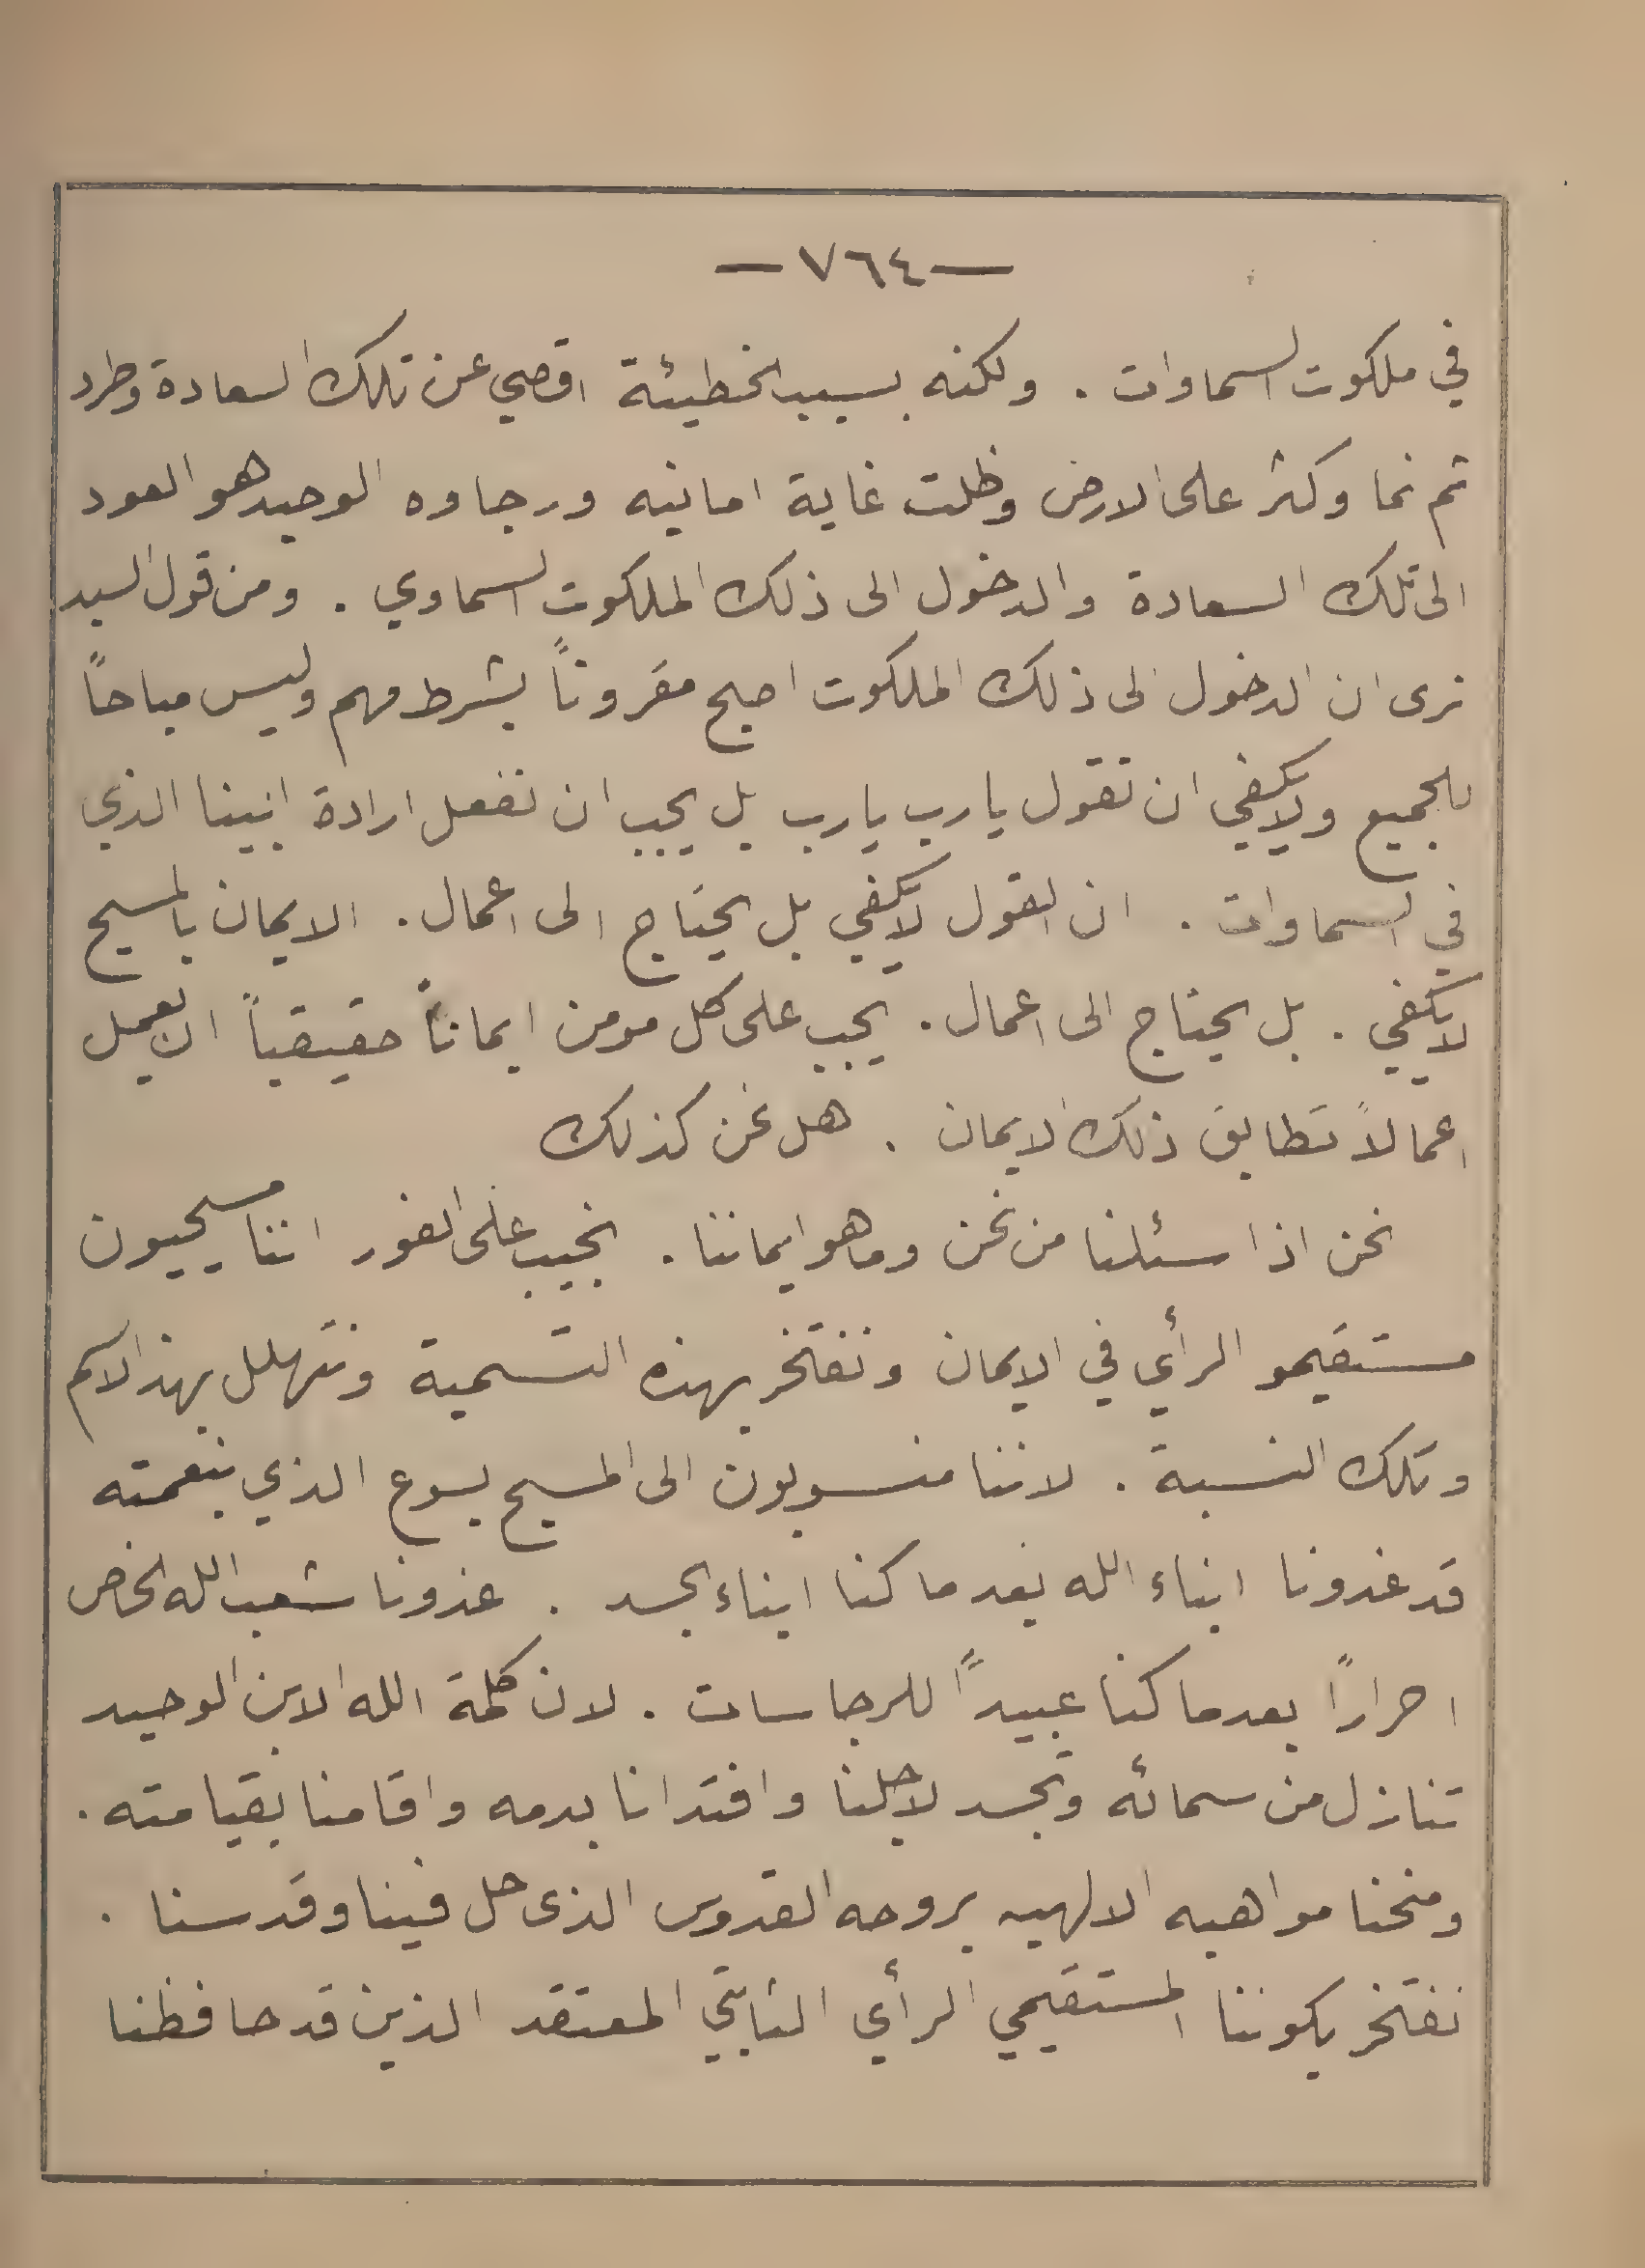 — ٧٦٤ —
في ملكوت السماوات . ولكنه بسبب الخطيئة اقصي عن تلك السعادة وطرد
ثم نما وكثر على الارض وظلت غاية امانيه ورجاوه الوحيد هو العود
الى تلك السعادة والدخول الى ذلك الملكوت السماوي . ومن قول السيد
نرى ان الدخول الى ذلك الملكوت اصبح مقروناً بشرط مهم وليس مباحاً
للجميع ولا يكفي ان نقول يا رب يا رب بل يجب ان نفعل ارادة ابينا الذي
في السماوات . ان القول لا يكفي بل يحتاج الى اعمال . الايمان بالمسيح
لا يكفي . بل يحتاج الى اعمال . يجب على كل مومن ايماناً حقيقياً ان يعمل
اعمالاً تطابق ذلك الايمان . هل نحن كذلك
نحن اذا سئلنا من نحن وما هو ايماننا . نجيب على الفور اننا مسيحيون
مستقيمو الرأي في الايمان ونفتخر بهذه التسمية ونتهلل بهذا الاسم
وتلك النسبة . لاننا منسوبون الى المسيح يسوع الذي بنعمته
قد غدونا ابناء الله بعد ما كنا ابناء الجسد . غدونا شعب الله الخاص
احراراً بعد ما كنا عبيداً للرجاسات . لان كلمة الله الابن الوحيد
تنازل من سمائه وتجسد لاجلنا وافتدانا بدمه واقامنا بقيامته .
ومنحنا مواهبه الالهيه بروحه القدوس الذى حل فينا وقدسنا .
نفتخر بكوننا المستقيمي الرأي الثابتي المعتقد الذين قد حافظنا